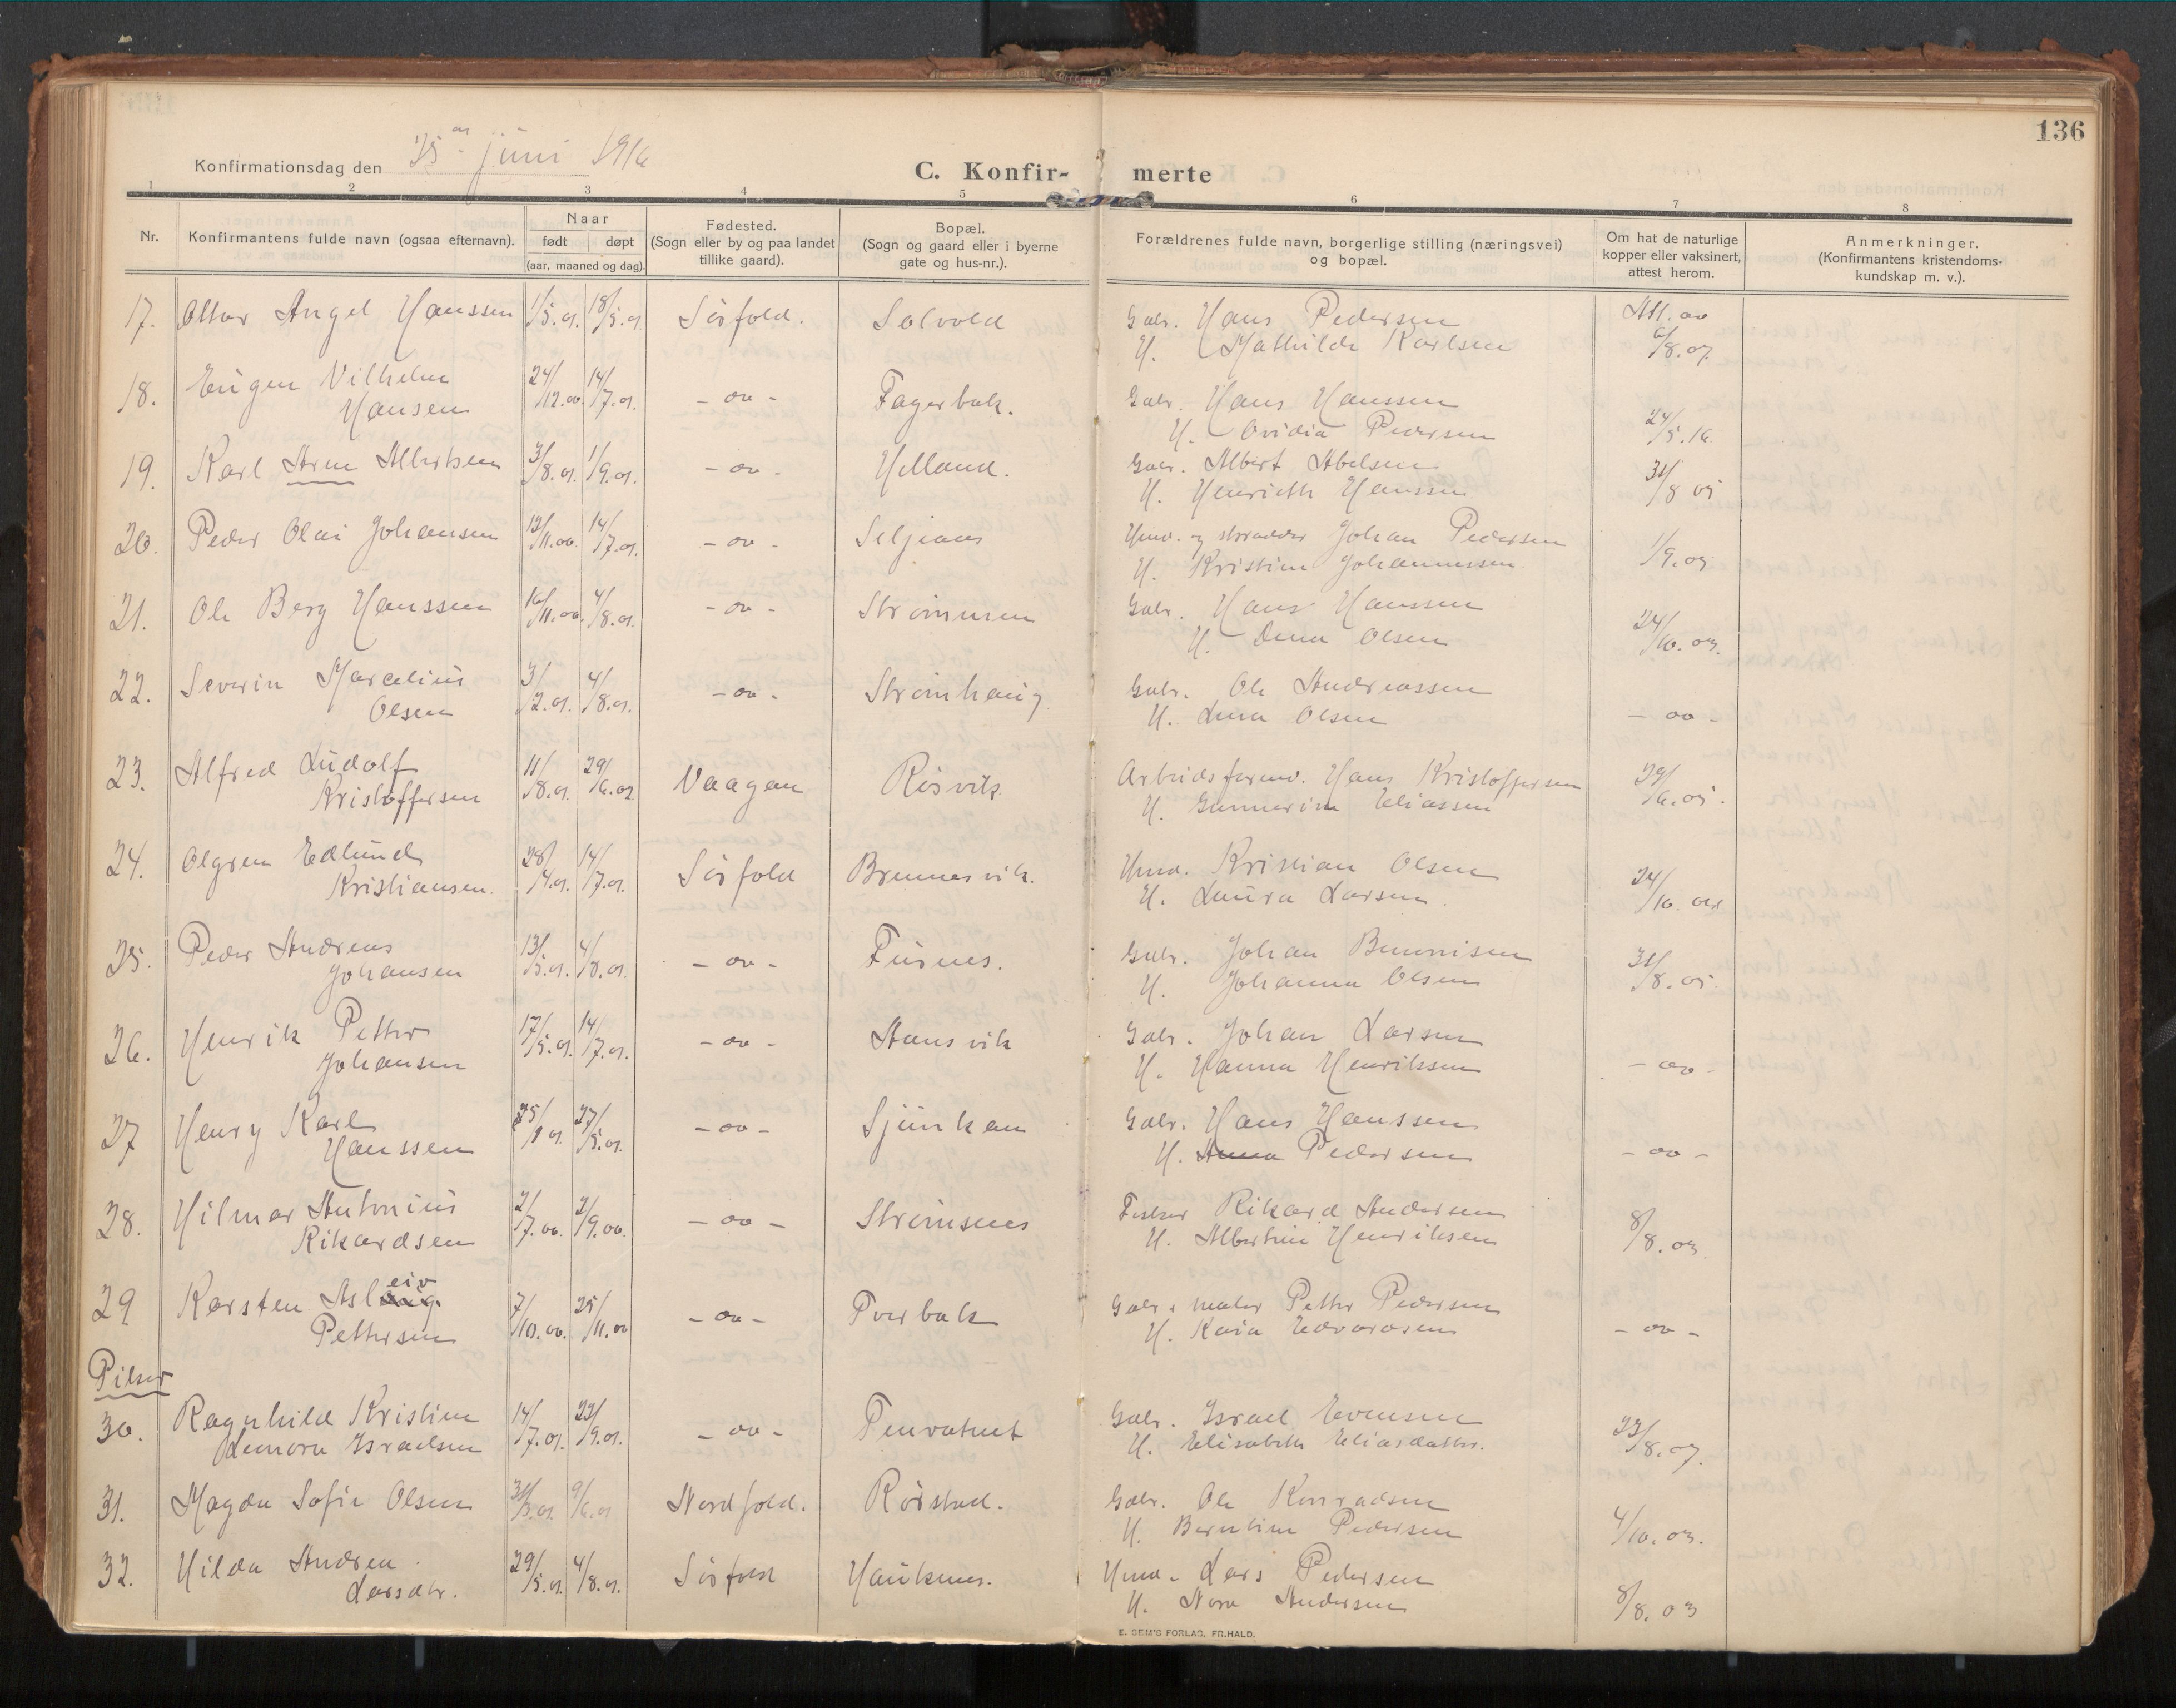 136
Konfirmationsdag den 25 juni 1916
C. Konfir- merte
1 2 3 4 5 6 7 8
Nr.
Konfirmantens fulde navn (ogsaa efternavn).
Naar
født døpt
(aar, maaned og dag).
Fødested.
(Sogn eller by og paa landet
tillike gaard).
Bopæl.
(Sogn og gaard eller i byerne
gate og hus-nr.).
Forældrenes fulde navn, borgerlige stilling (næringsvei)
og bopæl.
Om hat de naturlige
kopper eller vaksinert,
attest herom.
Anmerkninger.
(Konfirmantens kristendoms-
kundskap m. v.).
17. Ottar Angel Hanssen 1/5.01. 18/5.01. Sørfold. Solvold Gbr. Hans Pedersen Att. av
H. Mathilde Karlsen 6/8.07.
18. Eugen Vilhelm 24/12.00. 14/7.01. - oo - Fagerbak. Gbr. Hans Hanssen
Hansen H. Ovidia Pedersen 24/5.16.
19. Karl Arne Albertsen 3/8.01. 1/9.01. - oo - Helland. Gbr. Albert Abelsen 31/8 05
H. Henriette Hanssen
20. Peder Olai Johansen 12/11.00. 14/7.01. - oo - Seljeaas Hmd. og skrædder Johan Pedersen
H. Kristine Johannessen 1/9.05
21. Ole Berg Hanssen 16/11.00. 4/8.01. - oo - Strømmen Gbr. Hans Hanssen
H. Olsen 24/10.03.
22. Severin Marcelius 3/2.01. 4/8.01. - oo - Strømhaug Gbr. Ole Andreassen
Olsen H. Lena Olsen - oo -
23. Alfred Ludolf 11/8.01. 29/6.02. Vaagan Røsvik Arbeidsformd. Hans Kristoffersen 29/6.05.
Kristoffersen H. Gunnerine Eliassen
24. Olgren Edlund 28/4.01. 14/7.01. Sørfold Brennesvik. Hmd. Kristian Olsen
Kristiansen. H. Laura Larsen. 24/10.
25. Peder Andreas 13/5.01. 4/8.01. - oo - Furnes. Gbr. Johan Benonisen 31/8.05.
Johansen H. Johanna Olsen
26. Henrik Petter 17/5.01. 14/7.01. - oo - Stensvik Gbr. Johan Larsen
Johansen H. Hanna Henriksen - oo -
27 Henry Karl 25/1 01. 27/5.01. - oo - Sjunkan Gbr. Hans Hanssen
Hanssen H. Anna Pedersen - oo -
28. Hilmar Antonius 2/7.00. 2/9.00. - oo - Strømsnes Fisker Rikard Andersen
Rikardsen H. Albertine Henriksen 8/8.03
29. Karsten Asleiv 7/10.00. 25/11.00 - oo - Tverbak Gbr. maler Petter Pedersen
Pettersen H. Kaia Edvardsen - oo -
Piker
30. Ragnhild Kristine 14/7.01. 22/9.01. - oo - Tennvatnet Gbr. Israel Evensen
Lenora Israelsen H. Elisabeth Eliasdatter. 23/8.07.
31. Magda Sofie Olsen 31/3.01. 9/6.01 Nordfold. Rørstad. Gbr. Ole Konradsen
H. Berntine Pedersen 4/10.03.
32. Hilda Andrea 29/5.01. 4/8.01. Sørfold Hauknes. Hmd. Lars Pedersen
Larsdtr. H. Nora Andersen 8/8.03
E. SEM'S FORLAG, FR.HALD.